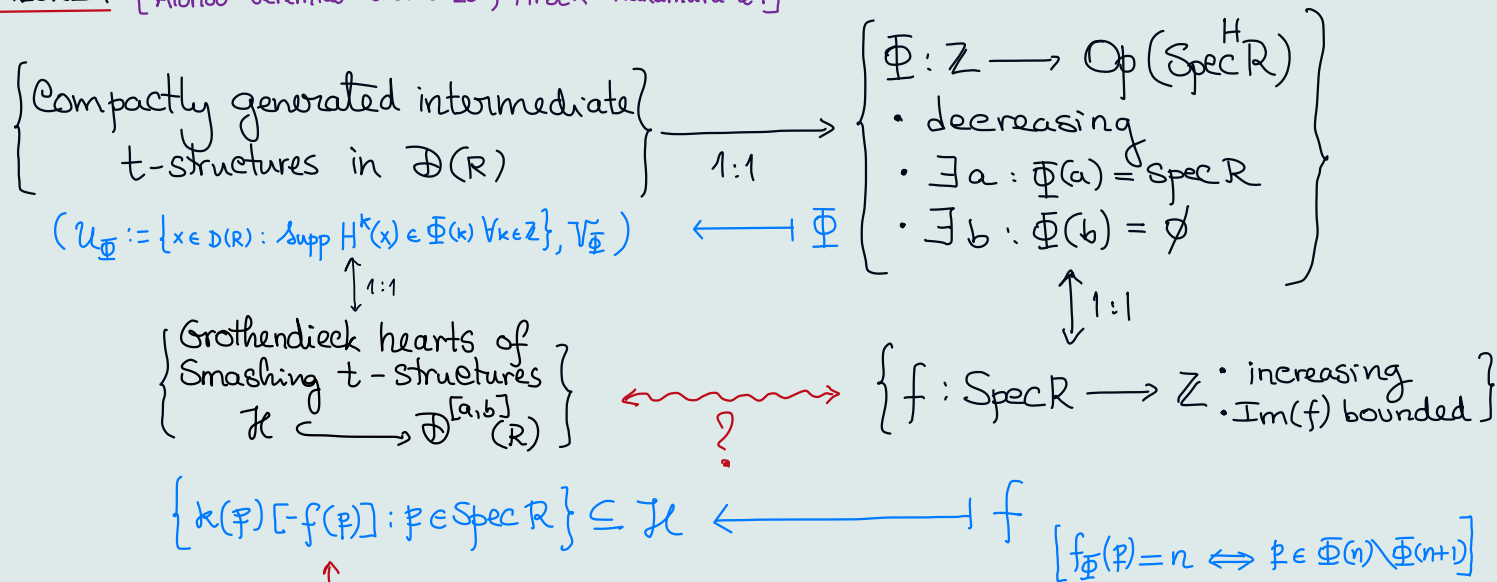 {Compactly generated intermediate
t-structures in 𝔻(R)}
1:1
{Φ : ℤ ⟶ Op(Spec^H R)
• decreasing
• ∃ a : Φ(a) = Spec R
• ∃ b : Φ(b) = ∅}
(𝒰_Φ := {x ∈ D(R) : Supp H^k(x) ∈ Φ(k) ∀k∈ℤ}, 𝒱_Φ) ⟻ Φ
↕ 1:1
↕ 1:1
{Grothendieck hearts of
Smashing t-structures
ℋ ↪ 𝔻^[a,b](R)}
?
{f : Spec R ⟶ ℤ • increasing
• Im(f) bounded}
{k(𝔭)[-f(𝔭)] : 𝔭 ∈ Spec R} ⊆ ℋ ⟻ f
[f_Φ(𝔭) = n ⟺ 𝔭 ∈ Φ(n)\Φ(n+1)]
↑